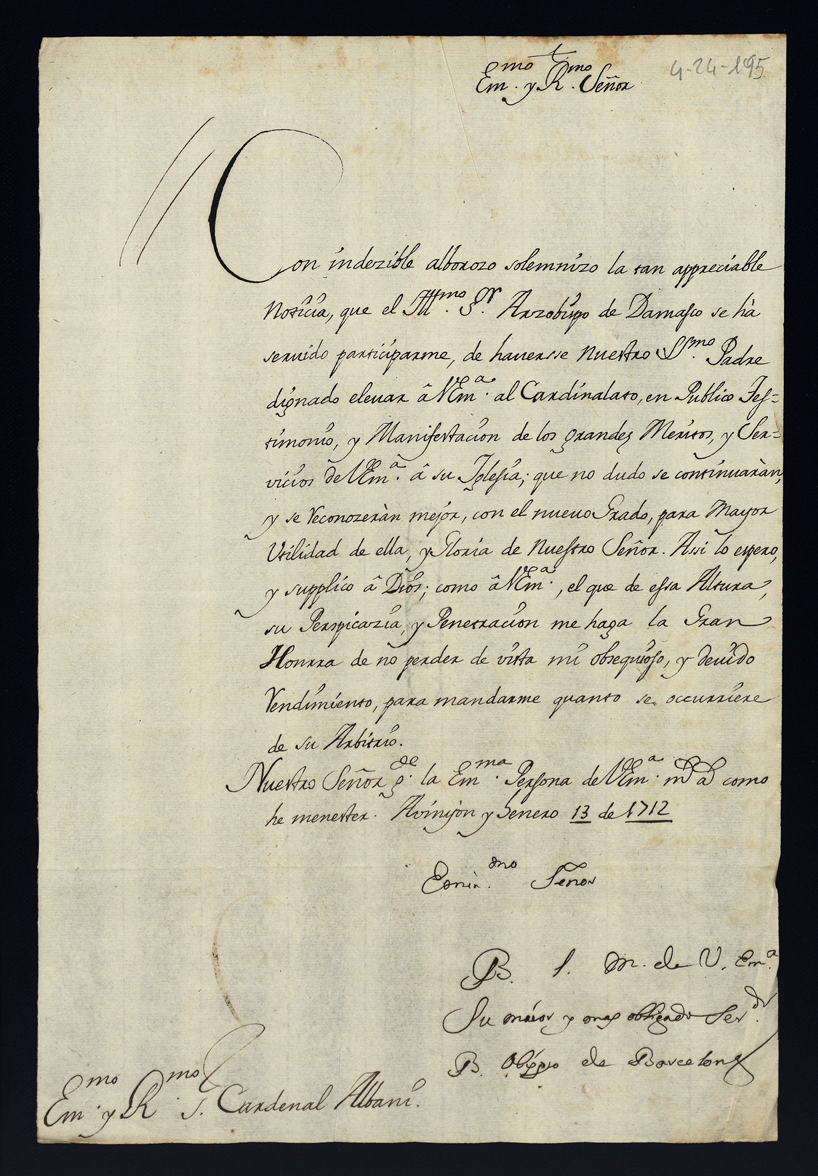 4-24-195
Em.mo y R.mo Señor
Con indezible alborozo solemnizo la tan appreciable
Noticia, que el Ill.mo S.r Arzobispo de Damasco se hà
seruido participarme, de hauersse Nuestro S.mo Padre
dignado eleuar â VEm.a al Cardinalato, en Publico Tes-
timonio, y Manifestacion de los grandes Meritos, y Ser-
vicios de VEm.a â su Iglesia; que no dudo se continuaràn,
y se reconozeràn mejor, con el nueuo Grado, para Mayor
Utilidad de ella, y Gloria de Nuestro Señor. Assi lo espero,
y supplico â Dios; como â VEm.a, el que de essa Altura,
su Perspicazia, y Penetracion me haga la Gran
Honrra de no perder de vista mi obsequioso, y deuido
Rendimiento, para mandarme quanto se occurriere
de su Arbitrio.
Nuestro Señor g.de la Em.ma Persona de VEm.a m.s a.s como
he menester. Avinjon y Henero 13 de 1712
Emin.mo Señor
B. l. m. de V. Em.a
Su maior y mas obligado Ser.dr
B. Obispo de Barcelona
Em.mo y R.mo S. Cardenal Albani.